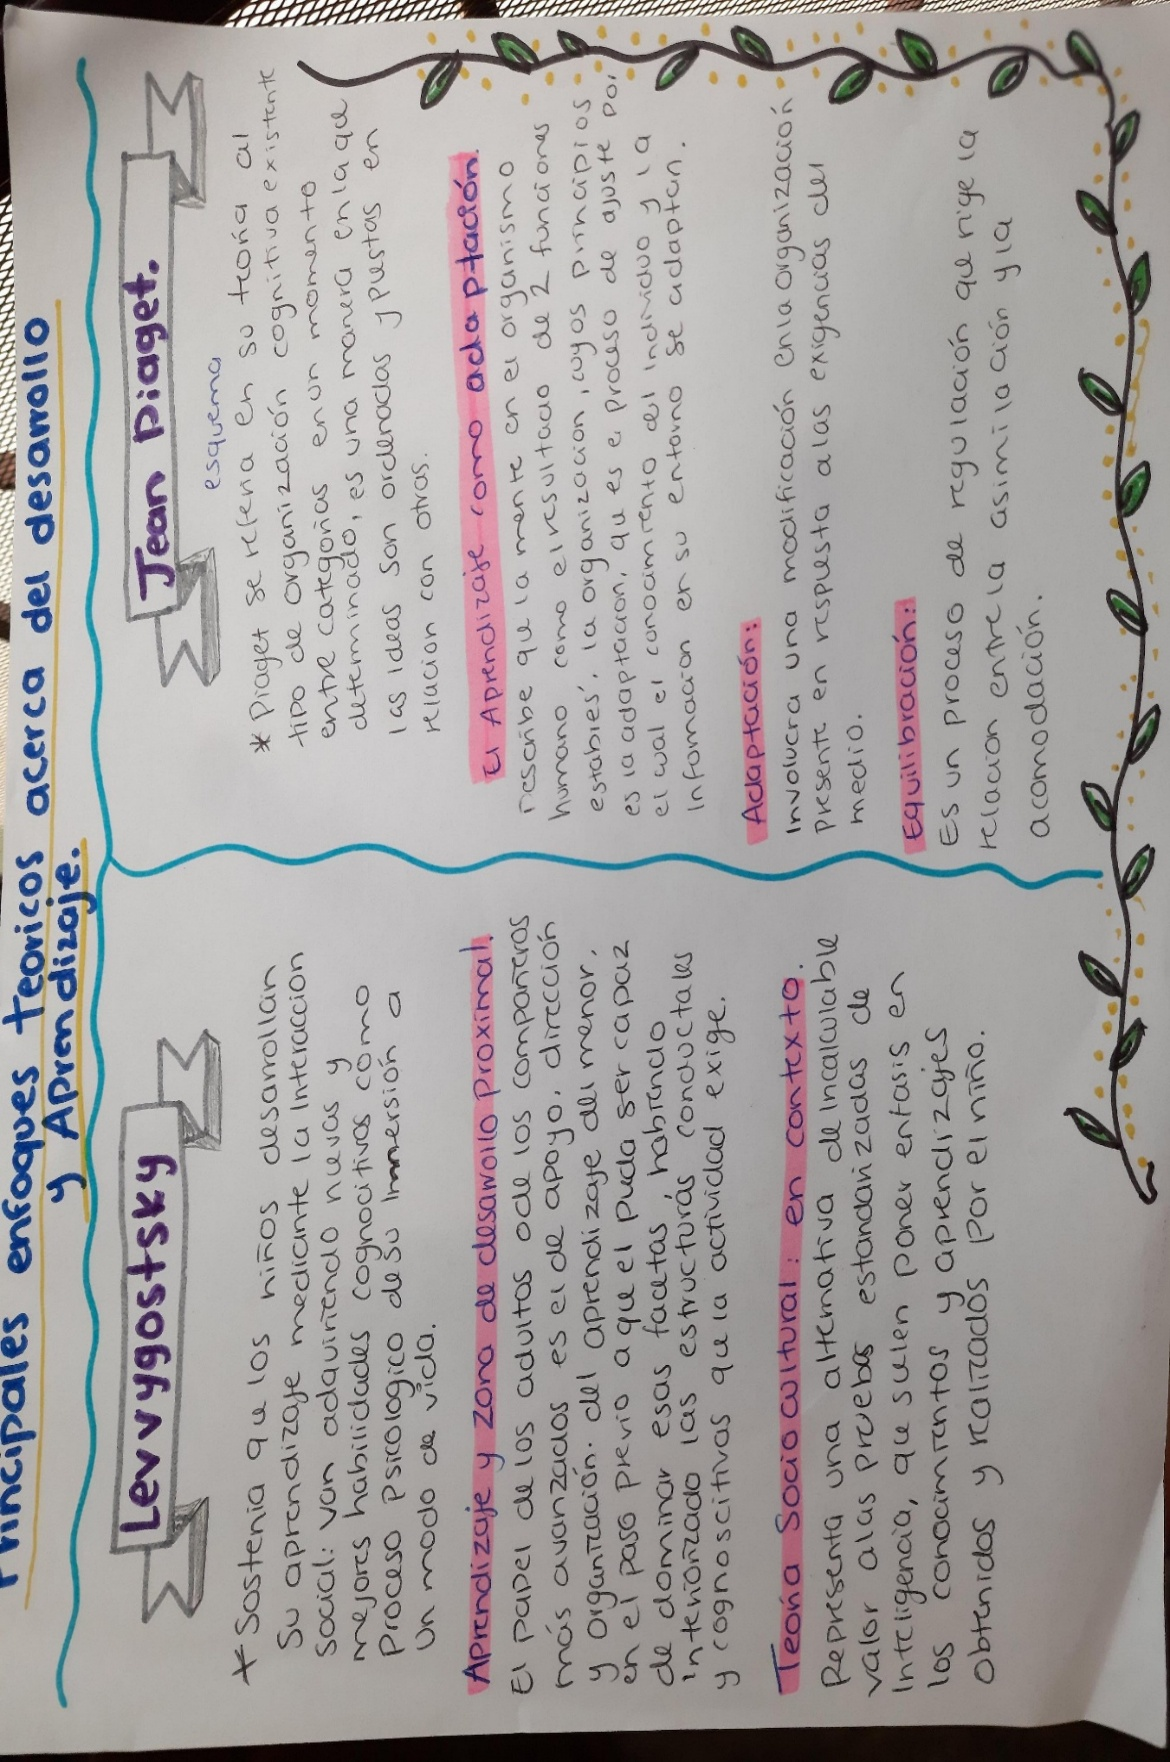 Principales enfoques teoricos acerca del desarrollo
y Aprendizaje.
Levvygostsky
* Sostenia que los niños desarrollan
su aprendizaje mediante la Interaccion
social: van adquiriendo nuevas y
mejores habilidades cognocitivas como
proceso psicologico de su Inmersión a
un modo de vida.
Aprendizaje y zona de desarrollo proximal.
El papel de los adultos o de los compañeros
más avanzados es el de apoyo, dirección
y organización. del aprendizaje del menor,
en el paso previo a que el pueda ser capaz
de dominar esas facetas, habiendo
interiorizado las estructuras conductales
y cognoscitivas que la actividad exige.
Teoría Sociocultural: en contexto.
Representa una alternativa de incalculable
valor a las pruebas estandarizadas de
Inteligencia, que suelen poner enfasis en
los conocimientos y aprendizajes
Obtenidos y realizados por el niño.
Jean Piaget.
esquema
* Piaget se refería en su teoría al
tipo de organización cognitiva existente
entre categorías en un momento
determinado, es una manera en la que
las ideas son ordenadas y puestas en
relacion con otras.
El Aprendizaje como adaptación.
Describe que la mente en el organismo
humano como el resultado de 2 funciones
estables: la organización, cuyos principios
es la adaptación, que es el proceso de ajuste por
el cual el conocimiento del individuo y la
información en su entorno se adaptan.
Adaptación:
Involucra una modificación en la organización
presente en respuesta a las exigencias del
medio.
Equilibración:
Es un proceso de regulación que rige la
relacion entre la asimilación y la
acomodación.